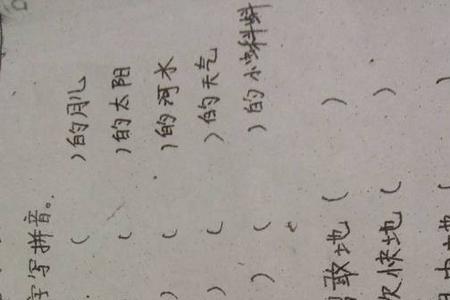 字写拼音。
(　　)的月儿
(　　)的太阳
)　(　　)的河水
)　(　　)的天气
)　(　　)的小蝌蚪
敢地(　　)
快地(　　)
地(　　)